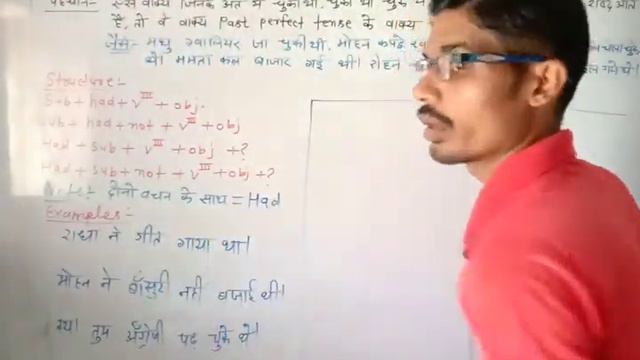 पहचान:- ऐसे वाक्य जिनके अंत में चुका था, चुकी थी, चुके
है, तो वे वाक्य Past perfect tense के वाक्य
जैसे- मधु ग्वालियर जा चुकी थी, मोहन कपड़े
थे। ममता कल बाजार गई थी। रोहन
Structure:-
Sub + had + vIII + obj.
Sub + had + not + vIII + obj
Had + sub + vIII + obj + ?
Had + sub + not + vIII + obj + ?
Note:- दोनो वचन के साथ = Had
Examples:-
राधा ने गीत गाया था।
मोहन ने बाँसुरी नहीं बजाई थी।
क्या तुम अँग्रेजी पढ़ चुके थे।